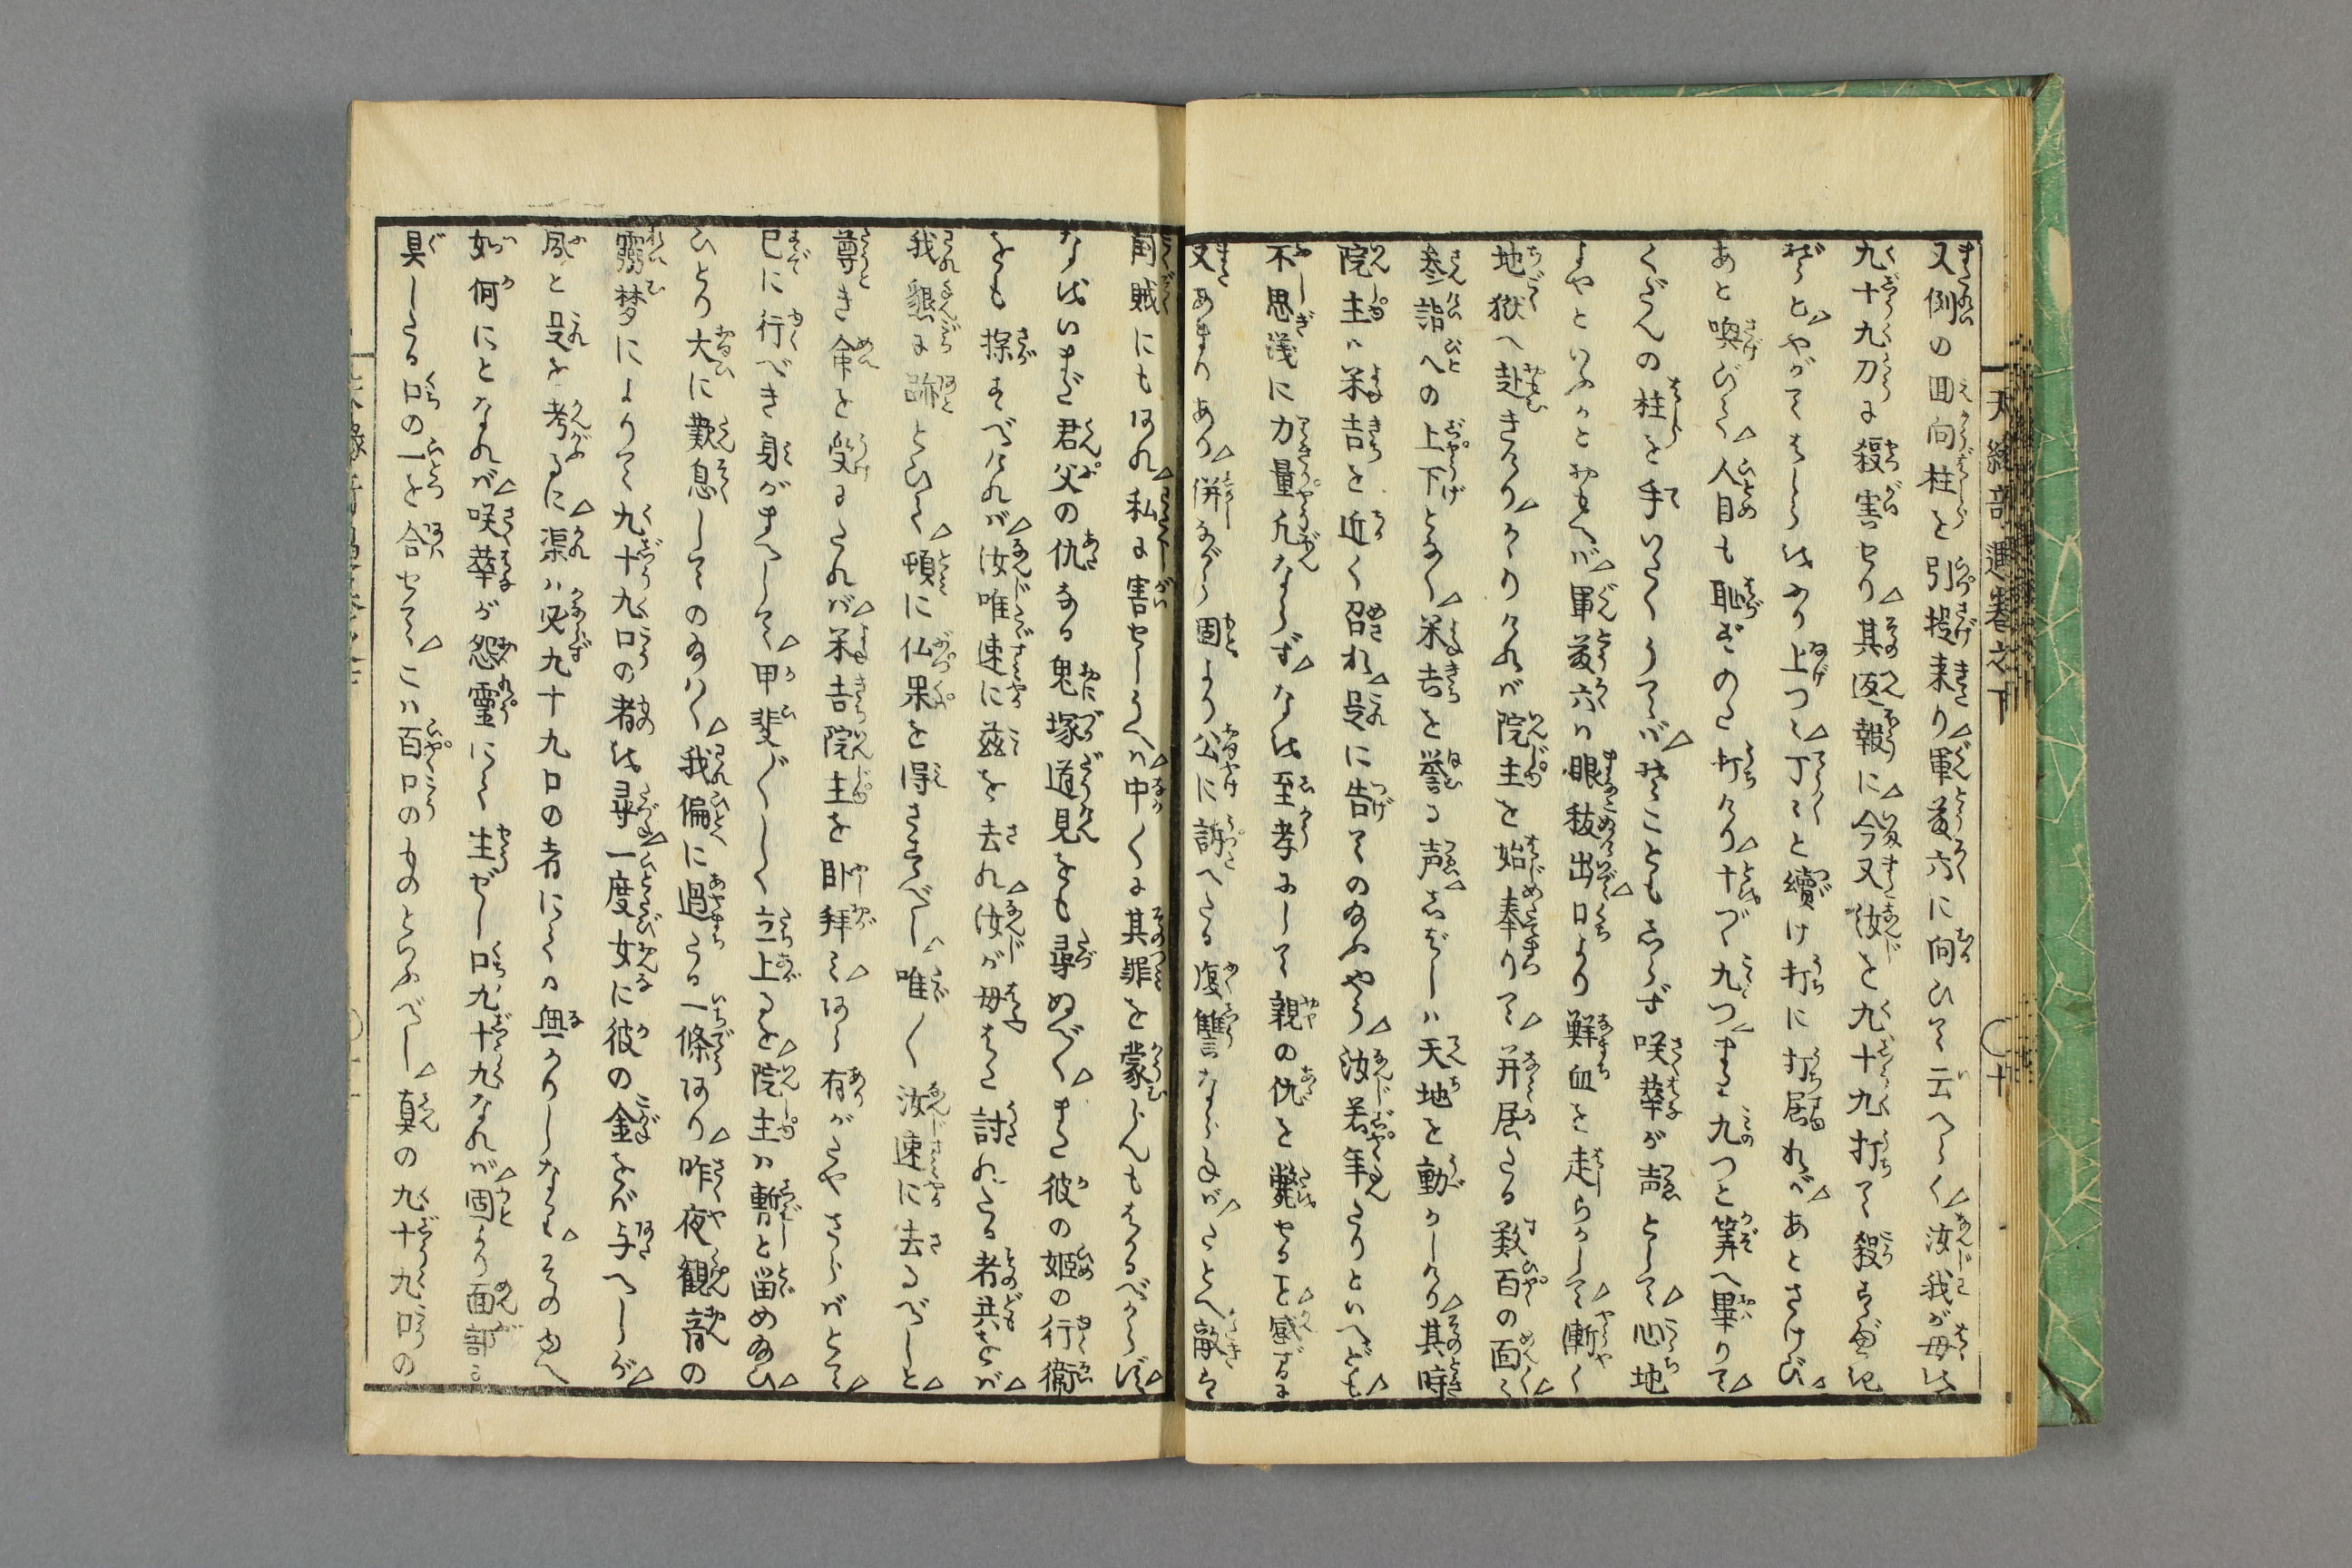 天縁奇遇巻之下
十
又例の囬向柱を引提来り軍藤六に向ひて云へらく汝我が母を
九十九刀に殺害せり其返報に今又汝を九十九打て殺すぞ
とやがてはしらをふり上つゝ丁々と續け打に打居れバあとさけび
あと喚びて人目も恥ずのた打けり十づゝ九つまた九つと筭へ畢りて
くだんの柱を手いたくうてバ咲華が声として心地
よやといふかとおもへバ軍藤六ハ眼秡出口より鮮血を走らかして漸く
地獄へ赴きけりかゝりけれバ院主を始奉りて并居たる数百の面々
参詣への上下となく米吉を誉る声しばしハ天地を動かしけり其時
院主ハ米吉を近く召れ是に告てのたふやう汝若年たりといへども
不思議に力量凡ならずなを至孝にして親の仇を斃せるを感ずるに
又あまりあり併ながら固より公に訴へたる復讐ならねバたとへ敵は
國賊にもあれ私に害せしうへハ中々に其罪を蒙らんもはかるべからず
なをいまだ君父の仇なる鬼塚道見をも尋ぬべくまた彼の姫の行衛
をも探すべけれバ汝唯速に茲を去れ汝が母また討れたる者共をバ
我懇に跡とひて頓に仏果を得さすべし唯〳〵汝速に去るべしと
尊き命を受にたれバ米吉院主を耶拝みあら有がたやさらバとて
已に行べき身がまへして甲斐〴〵しく立上るを院主ハ暫しと留め給ひ
ひとり大に歎息してのたはく我偏に過てる一條あり昨夜観音の
霊夢によりて九十九口の者を尋一度女に彼の金をバ与へしが
風と是を考るに渠ハ必九十九口の者にてハ無かりしならんそのゆへ
如何にとなれバ咲華が怨霊にて生ぜし口九十九なれバ固より面部に
具したる口の一を合せてこハ百口のものといふべし真の九十九口の